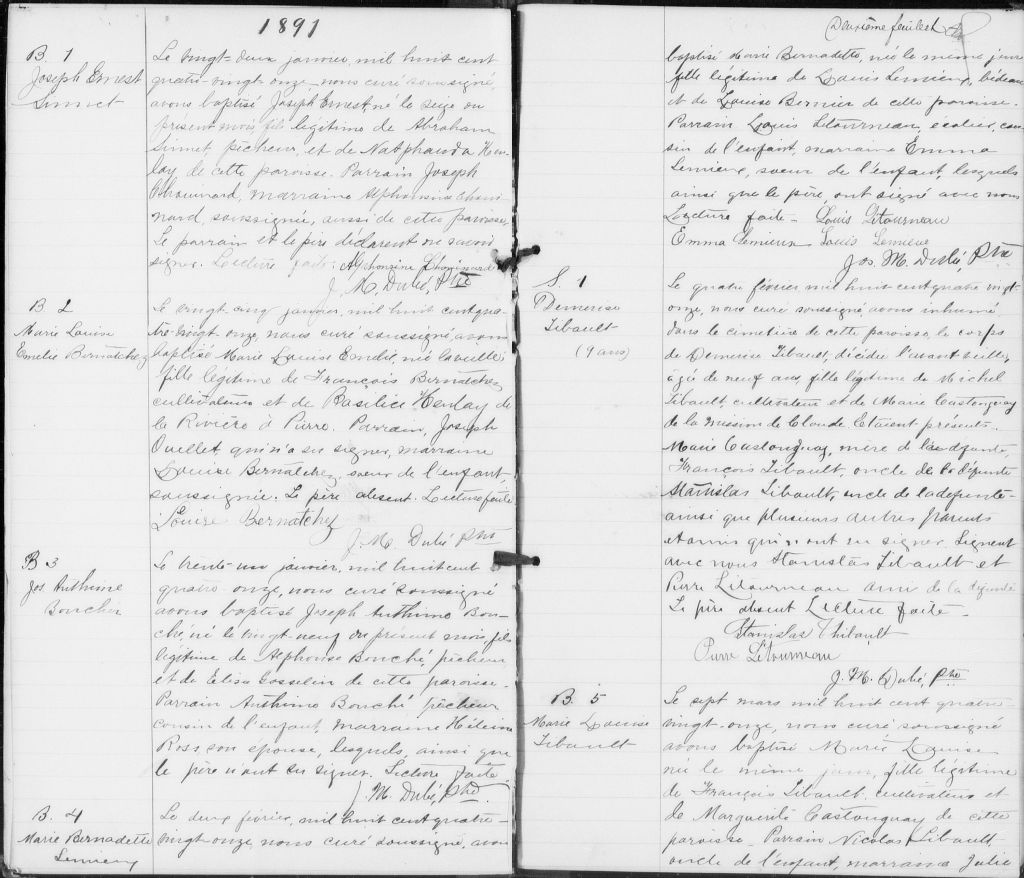 1891
B. 1
Joseph Ernest
Sinnet
Le vingt-deux janvier, mil huit cent
quatre-vingt onze, nous curé soussigné,
avons baptisé Joseph Ernest, né le seize du
présent mois fils légitime de Abraham
Sinnet pêcheur, et de Nathanda Hen-
ley de cette paroisse. Parrain Joseph
Chouinard, marraine Alphonsine Choui
nard, soussignée, aussi de cette paroisse,
Le parrain et le père déclarent ne savoir
signer. Lecture faite. Alphonsine Chouinard
J. M. Dubé, Ptre
B. 2
Marie Louise
Emélie Bernatchez
Le vingt-cinq janvier, mil huit cent qua-
tre-vingt onze, nous curé soussigné, avons
baptisé Marie Louise Emélie, née la veille
fille légitime de François Bernatchez
cultivateur et de Basilice Henley de
la Rivière à Pierre. Parrain, Joseph
Ouellet, qui n'a su signer, marraine
Louise Bernatchez, soeur de l'enfant,
soussignée. Le père absent. Lecture faite
Louise Bernatchez
J. M. Dubé Ptre
B 3
Jos Anthime
Boucher
Le trente-un janvier, mil huit cent
quatre-onze, nous curé soussigné
avons baptisé Joseph Anthime Bou-
ché né le vingt-neuf du présent mois, fils
légitime de Alphonse Bouché, pêcheur
et de Elisa Gosselin de cette paroisse.
Parrain Anthime Bouché pêcheur
cousin de l'enfant, marraine
Ross, son épouse, lesquels, ainsi que
le père n'ont su signer. Lecture faite
J. M. Dubé, Ptre
B. 4
Marie Bernadette
Lemieux
Le deux février, mil huit cent quatre-
vingt-onze, nous curé soussigné, avons
Deuxième feuillet
baptisé Marie Bernadette, née le même jour
fille légitime de Louis Lemieux, bédeau
et de Louise Bernier de cette paroisse.
Parrain Louis Letourneau, écolier, cou-
sin de l'enfant, marraine Emma
Lemieux, soeur de l'enfant, lesquels
ainsi que le père, ont signé avec nous
Lecture faite - Louis Letourneau
Emma Lemieux Louis Lemieux
Jos. M. Dubé, Ptre
S. 1
Demerise
Tibault
(9 ans)
Le quatre février mil huit cent quatre vingt-
onze, nous curé soussigné, avons inhumé
dans le cimetière de cette paroisse, le corps
de Demerise Tibault, décédée l'avant veille,
âgée de neuf ans, fille légitime de Michel
Tibault, cultivateur et de Marie Castonguay
de la mission de Cloude. Etaient présents.
Marie Castonguay, mère de la défunte,
François Tibault, oncle de la défunte
Stanislas Tibault, oncle de la défunte-
ainsi que plusieurs autres parents
et amis qui n'ont su signer. Signent
avec nous Stanislas Tibault et
Pierre Litourneau ami de la défunte
Le père absent Lecture faite -
Stanislas Thibault
Pierre Létourneau
J. M. Dubé, Ptre
B. 5
Marie Louise
Tibault
Le sept mars mil huit cent quatre-
vingt-onze, nous curé soussigné
avons baptisé Marie Louise
née le même jour, fille légitime
de François Tibault, cultivateur et
de Marguerite Castonguay de cette
paroisse. Parrain Nicolas Tibault
oncle de l'enfant, marraine Julie